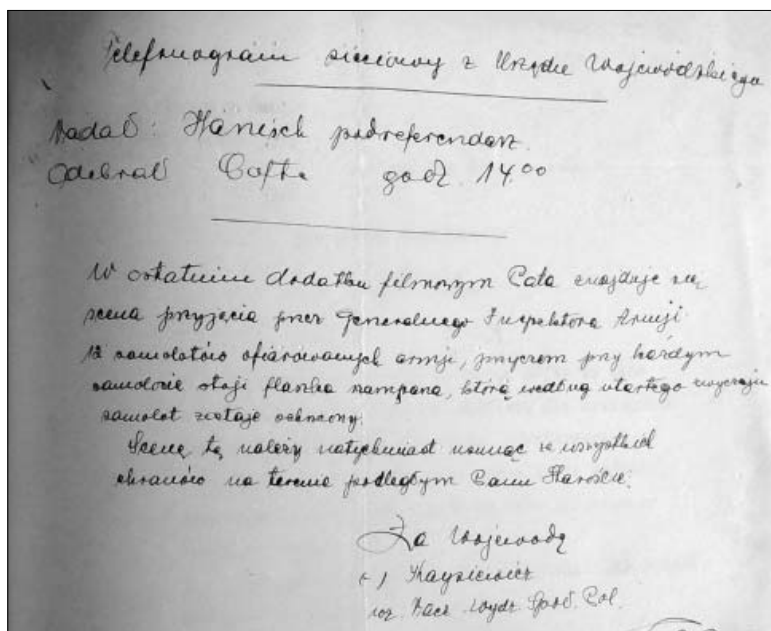 Telefonogram sieciowy z Urzędu Wojewódzkiego
Nadał: Hanisch podreferendarz
Odebrał godz. 14.00
W ostatnim dodatku filmowym Pata znajduje się
scena przyjęcia przez Generalnego Inspektora Armji
12 samolotów ofiarowanych armji, przyczem przy każdym
samolocie stoji flaszka szampana, którą według utartego zwyczaju
samolot zostaje ochrzcony.
Scenę tę należy natychmiast usunąć ze wszystkich
ekranów na terenie podległym Panu Staroście.
Za Wojewodę
Nacz. Wydz. Społ. Pol.